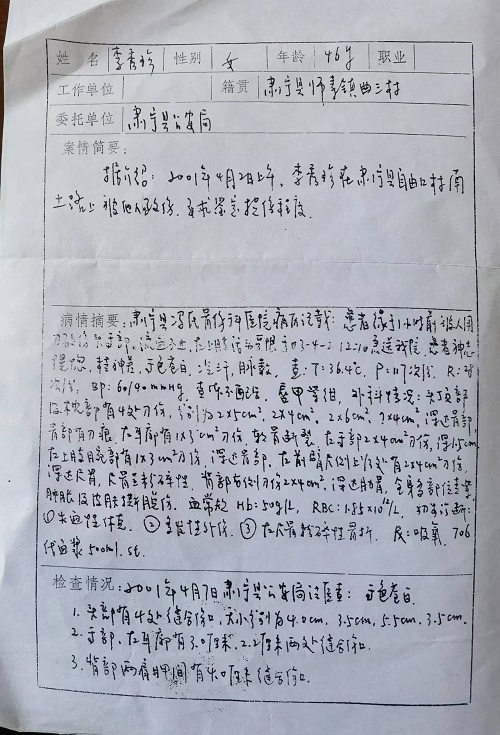 姓名 李秀珍 性别 女 年龄 46岁 职业
工作单位 籍贯 肃宁县师素镇曲三村
委托单位 肃宁县公安局
案情简要:
据介绍:2001年4月2日上午,李秀珍在肃宁县自由口村南
土路上被他人砍伤,要求鉴定损伤程度.
病情摘要:肃宁县冯氏骨伤科医院病历记载:患者缘于1小时前被人用
刀砍伤头面部,流血不止,在 于03-4-2 12:10急送我院,患者神志
恍惚,精神差,面色苍白,出冷汗,脉数,查:T:36.4℃,P:117次/分,R:
次/分,BP:60/40mmHg.查体不配合,五甲营组,外科情况:头顶部
及枕部有4处刀伤,分别为2×5cm²,2×4cm²,2×6cm²,3×4cm²,深达骨部,
骨部有刀痕,左耳廓有1×3cm²刀伤,软骨断裂,左面部2×4cm²刀伤,深1.5cm,
左上 部1×3cm²刀伤,深达骨部,左前臂尺侧上1/3处有2×4cm²刀伤,
深达尺骨,尺骨呈粉碎性.背部 刀伤2×4cm²,深达肋骨,全身多部位青紫
肿胀及皮肤擦脱伤.血常规 Hb:50g/L,RBC:1.85×10¹²/L,初步诊断:
①失血性休克.②多发性外伤.③左尺骨粉碎性骨折.处:吸氧,706
代血浆500ml.st.
检查情况:2001年4月7日肃宁县公安局法医查:面色苍白.
1.头部有4处缝合伤口,大小分别为4.0cm,3.5cm,5.5cm,3.5cm.
2.面部、左耳廓有3.0厘米、2.2厘米两处缝合伤口.
3.背部两肩胛间有4.0厘米缝合伤口.